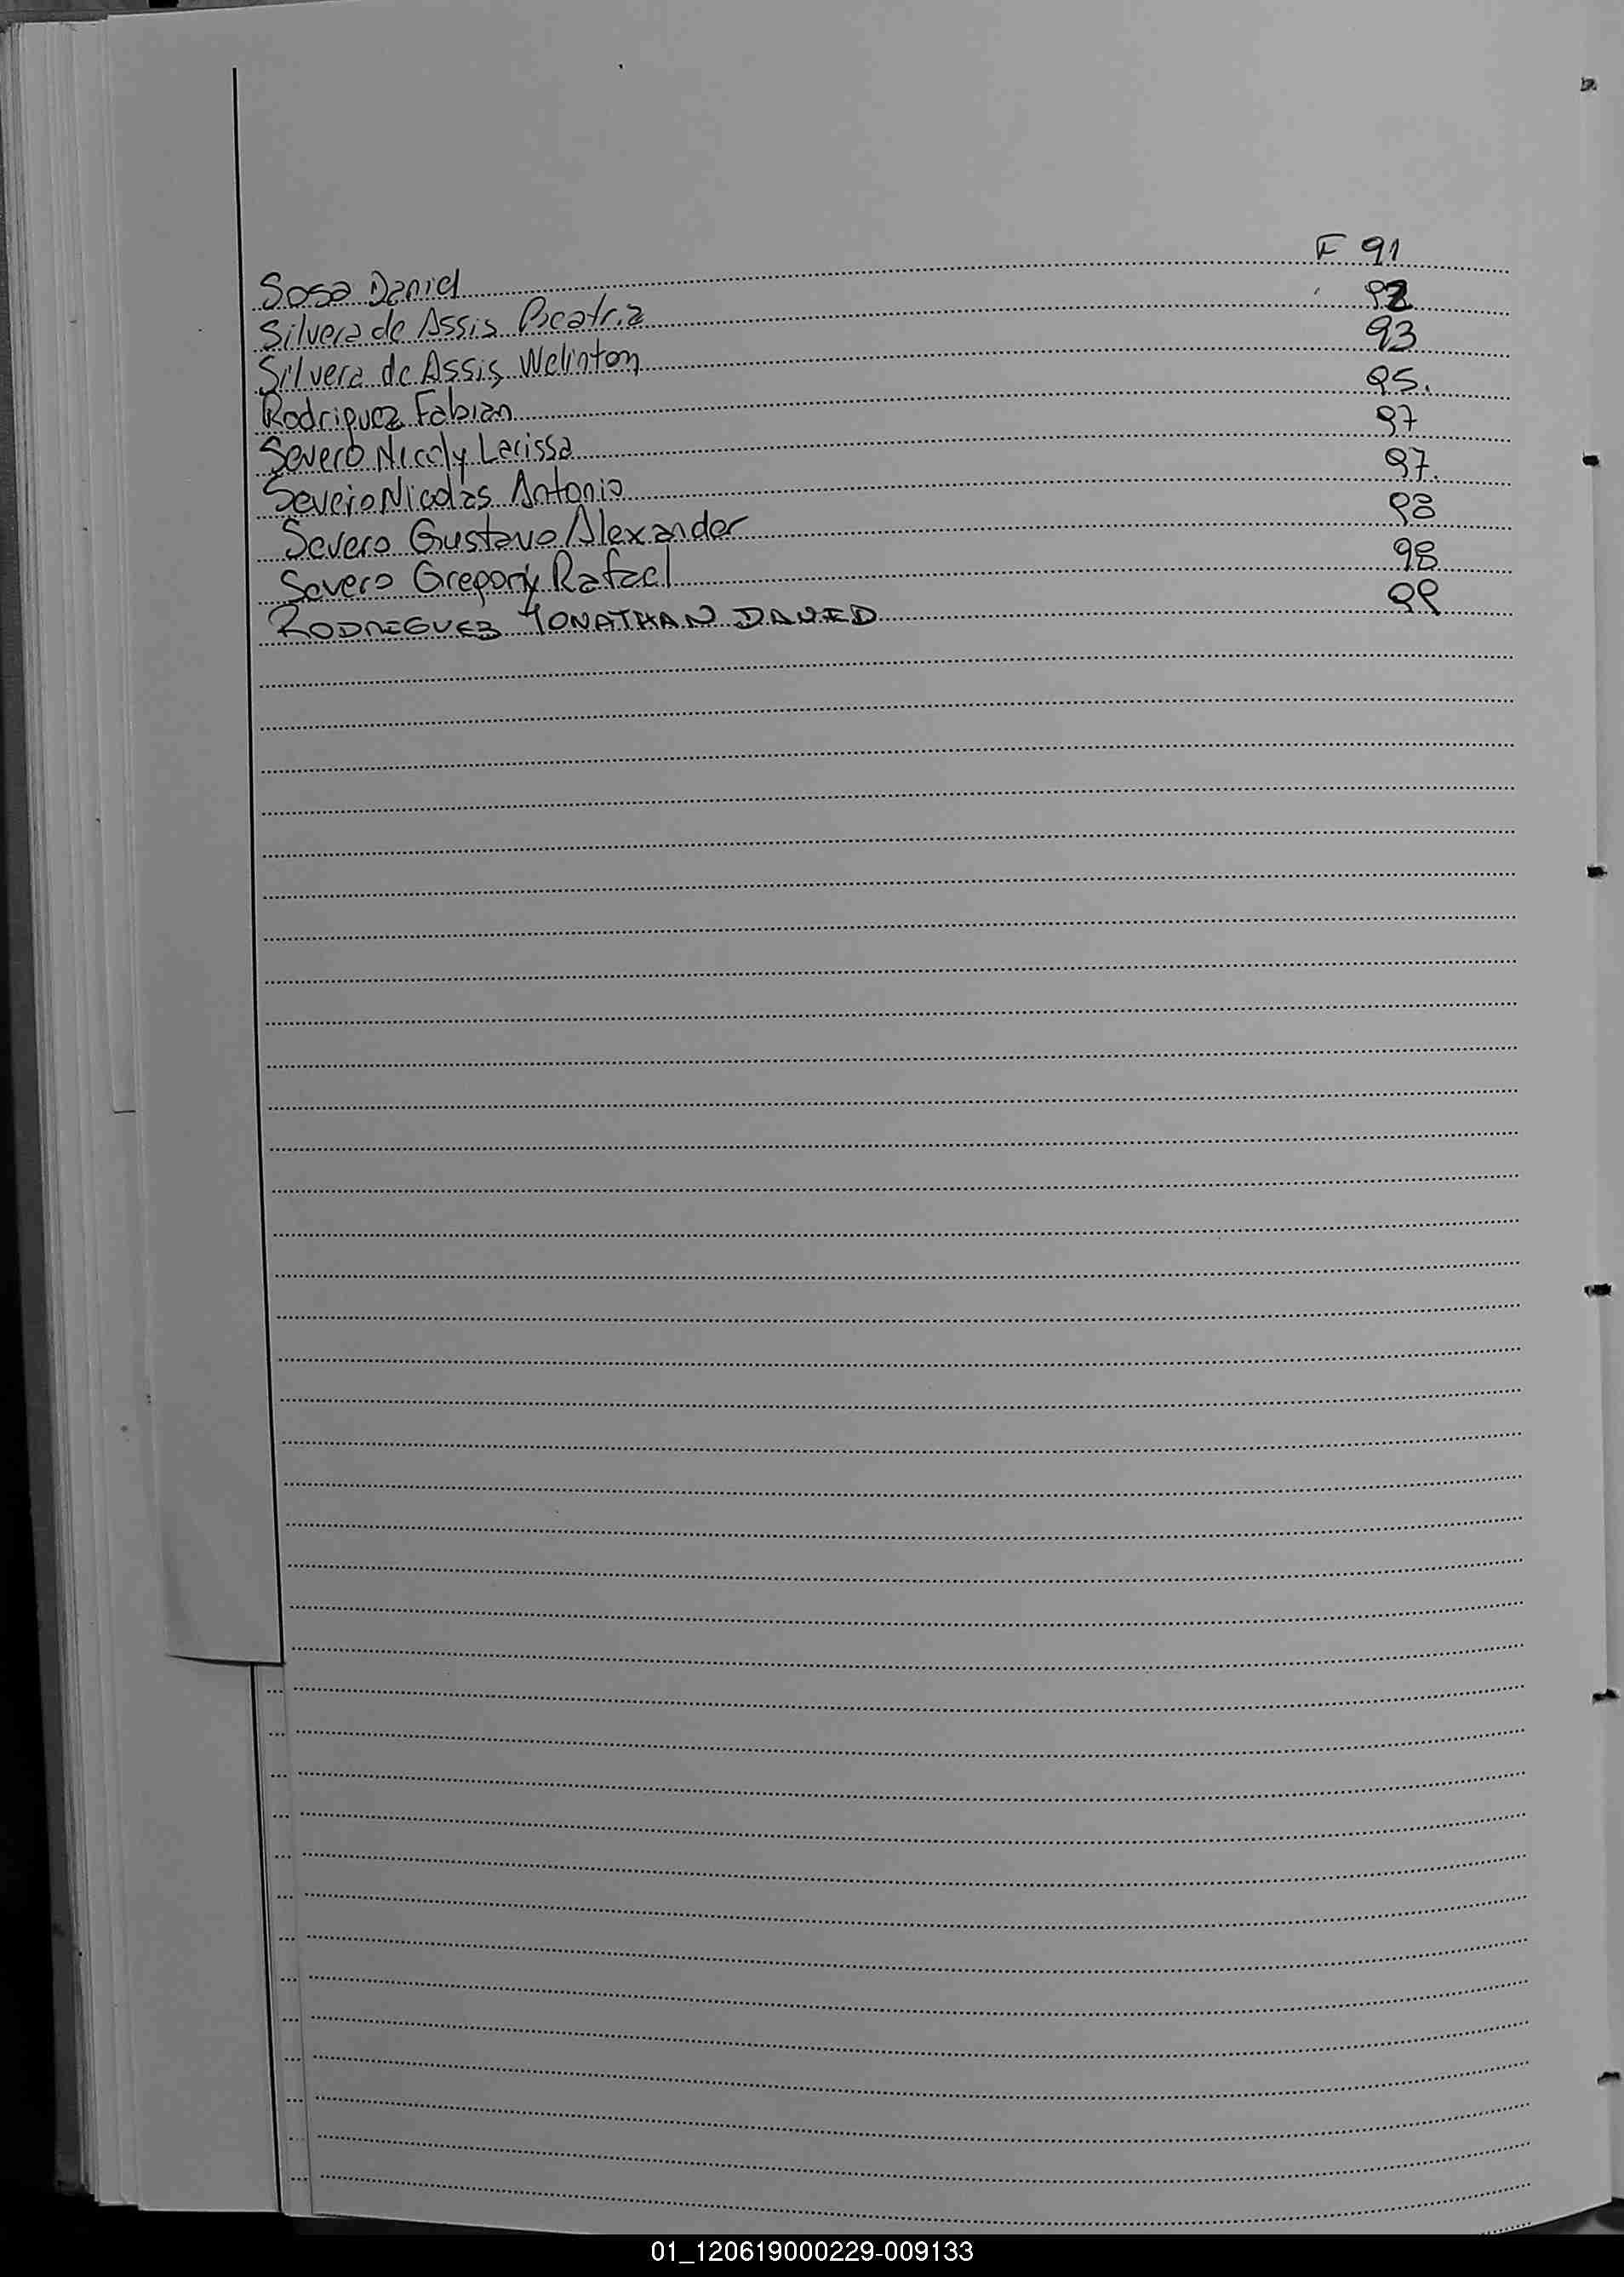 Sosa Daniel F 91
Silvera de Assis Beatriz 92
Silvera de Assis Welinton 93
Rodriguez Fabian 95.
Severo Nicoly Larissa 97
Severo Nicolas Antonio 97.
Severo Gustavo Alexander 98
Severo Gregory Rafael 98
RODRIGUEZ JONATHAN DAVID 99
01_120619000229-009133